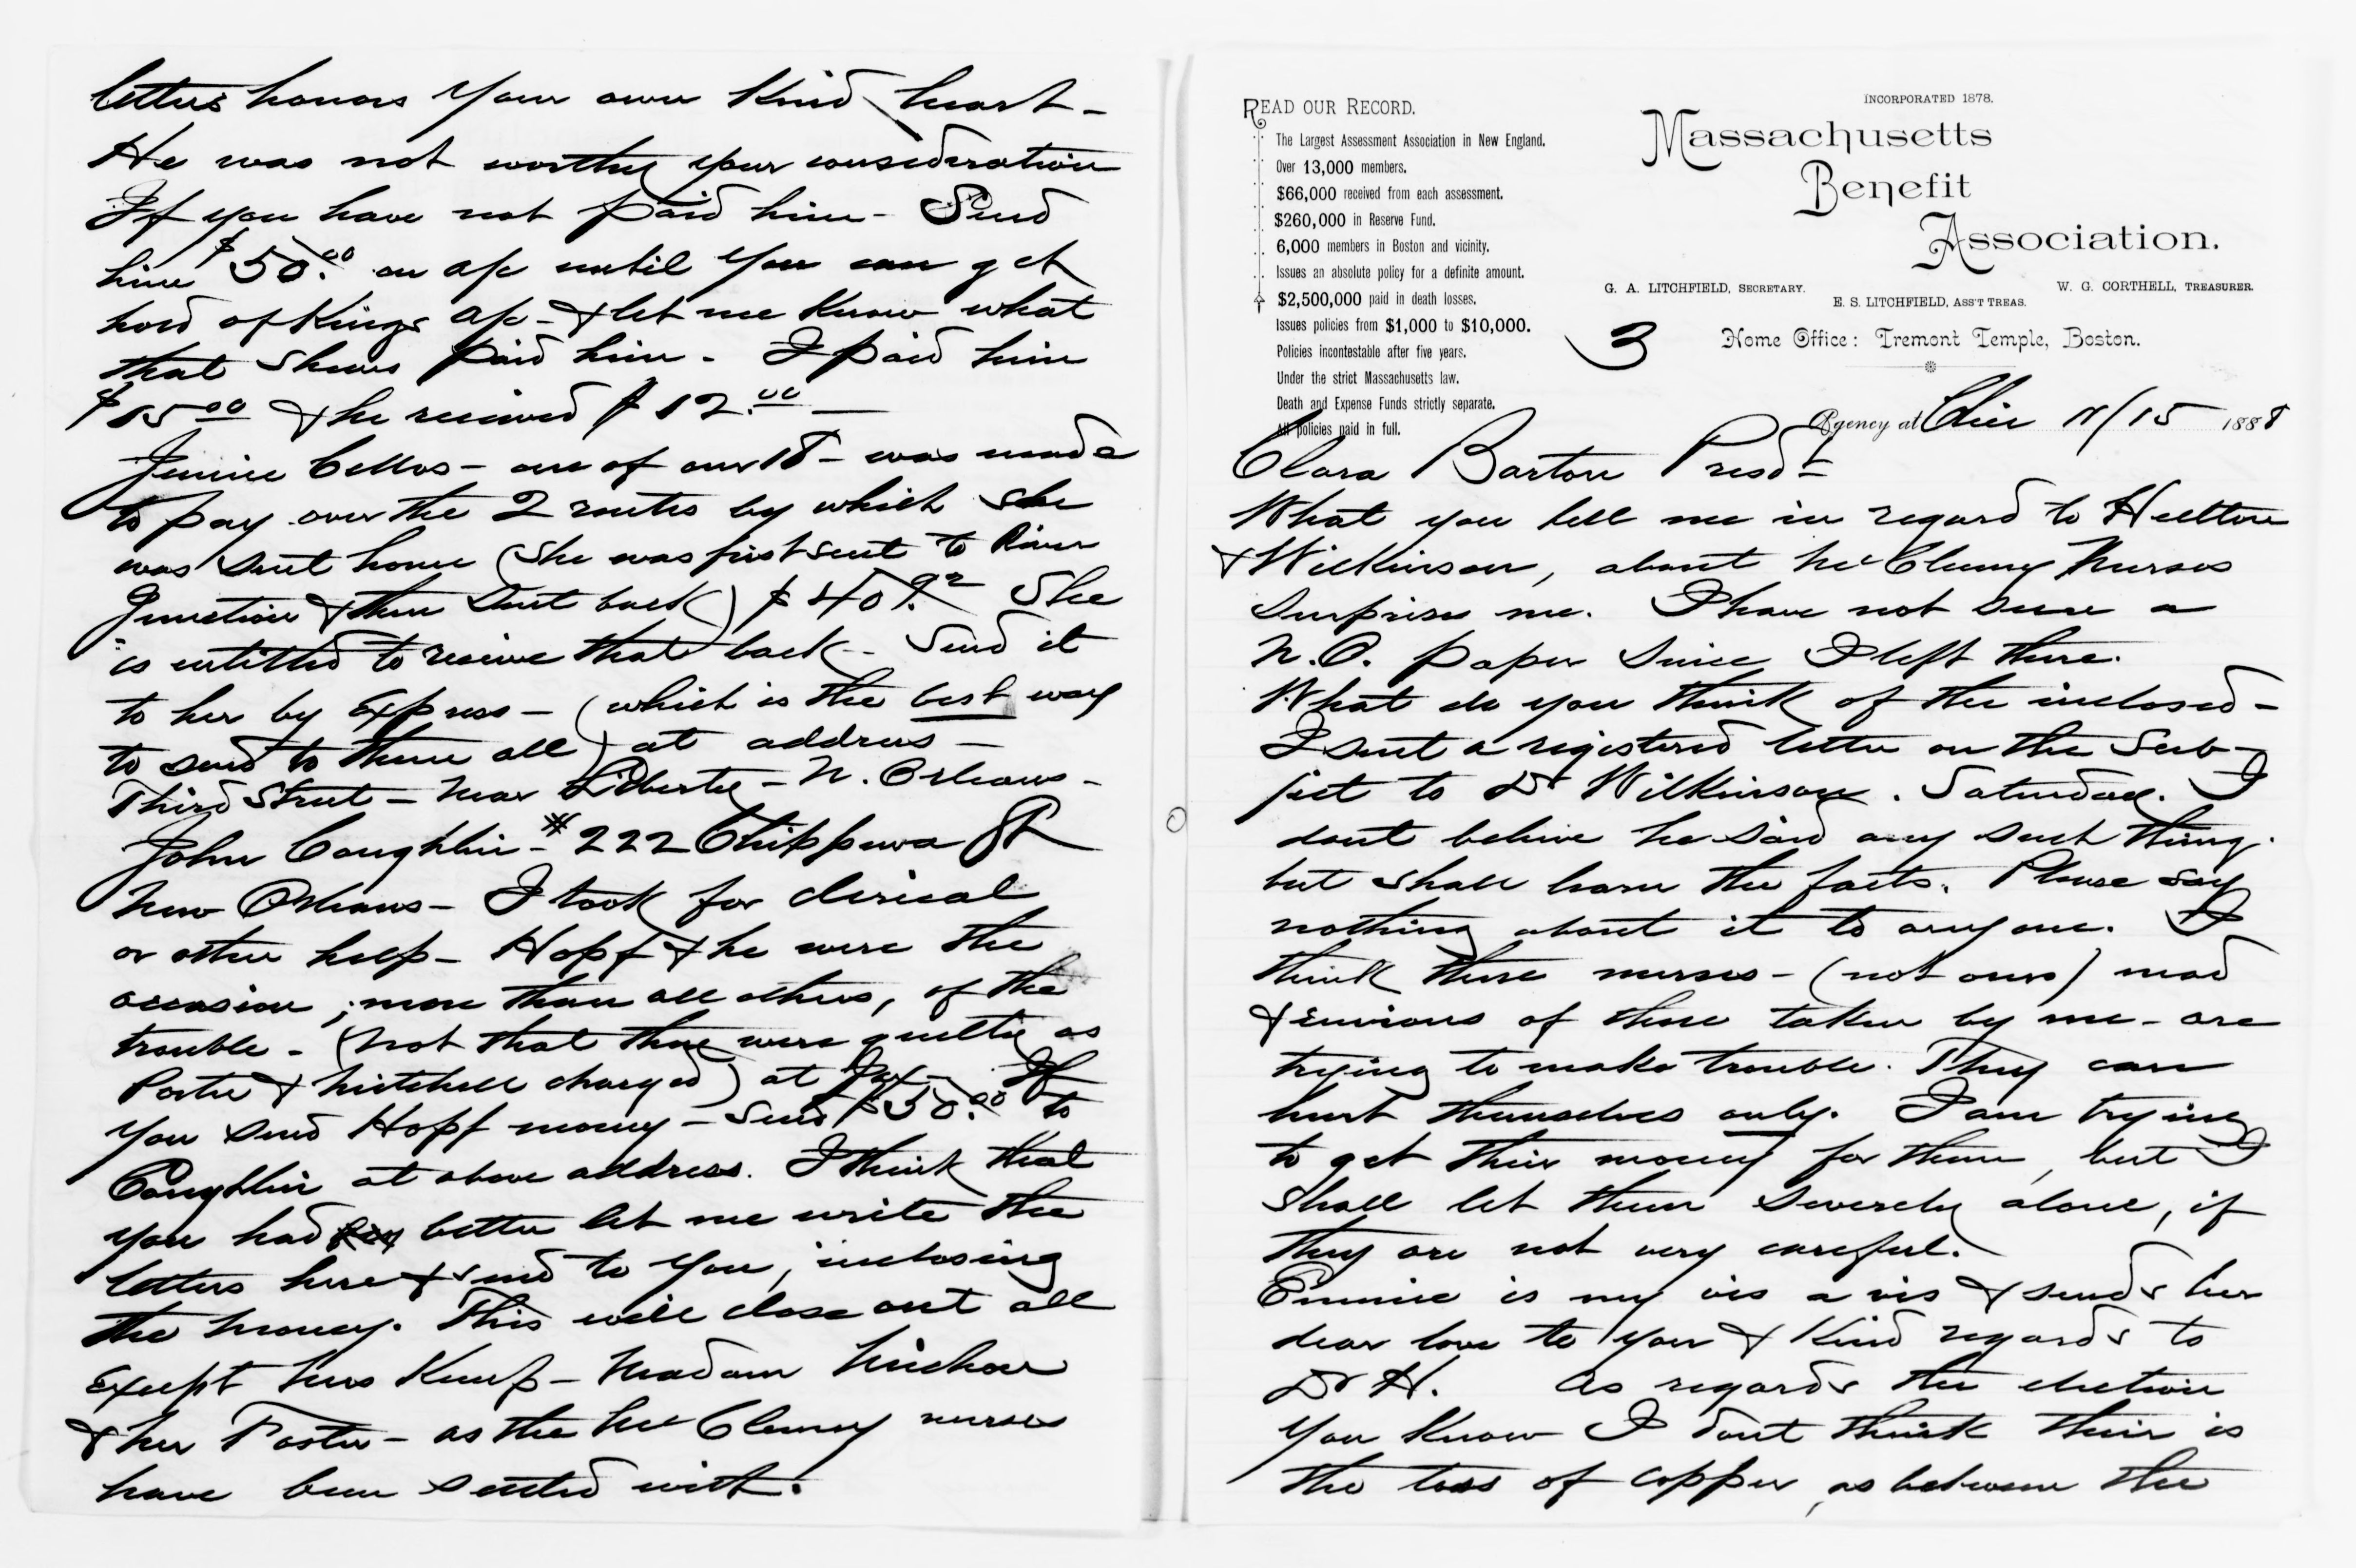 letters honors your own kind heart -
He was not worthy your consideration
If you have not paid him - Send
him $50.00 on a/c until you can get
hold of Kings a/c - & let me know what
that shows paid him - I paid him
$15 00 & he received $12.00 —
Jennie Cellos - one of our 18 - was made
to pay over the 2 routes by which she
was sent home (she was first sent to River
Junction & then sent back) $40
is entitled to receive that back - Send it
to her by Express - (which is the best way
to send to them all) at address -
Third Street - near Liberty - N. Orleans -
John Coughlin - #222 Chippewa St
New Orleans - I took for clerical
or other help - Hopf & he were the
occasion, more than all others, of the
trouble - (Not that they were guilty as
Porter & Mitchell charged) at Jax - If
you send Hopf money - send $50.00 to
Coughlin at above address. I think that
you had better let me write the
letters here & send to you, inclosing
the money. This will close out all
Except Mrs Kemp - Madam
& Mrs Foster - as the McClenny nurses
have been settled with.
READ OUR RECORD.
The Largest Assessment Association in New England.
Over 13,000 members.
$66,000 received from each assessment.
$260,000 in Reserve Fund.
6,000 members in Boston and vicinity.
Issues an absolute policy for a definite amount.
$2,500,000 paid in death losses.
Issues policies from $1,000 to $10,000.
Policies incontestable after five years.
Under the strict Massachusetts law.
Death and Expense Funds strictly separate.
All policies paid in full.
INCORPORATED 1878.
Massachusetts
Benefit
Association.
G. A. LITCHFIELD, SECRETARY.
W. G. CORTHELL, TREASURER.
E. S. LITCHFIELD, ASS'T TREAS.
3
Home Office: Tremont Temple, Boston.
Agency at Chic 11/15 1888
Clara Barton Presdt
What you tell me in regard to Hutton
& Wilkinson, about McClenny Nurses
surprises me. I have not seen a
N.O. paper since I left there.
What do you think of the inclosed -
I sent a registered letter on the sub-
ject to Dr Wilkinson. Saturday. I
dont believe he said any such thing.
but shall learn the facts. Please say
nothing about it to any one. I
think these nurses - (not ours) mad
& envious of those taken by me - are
trying to make trouble. They can
hurt themselves only. I am trying
to get their money for them, but I
shall let them severely alone, if
they are not very careful.
Emmie is my vis a vis & sends her
dear love to you & kind regards to
Dr H. As regards the election
You know I dont think their is
the toss of copper, as between the